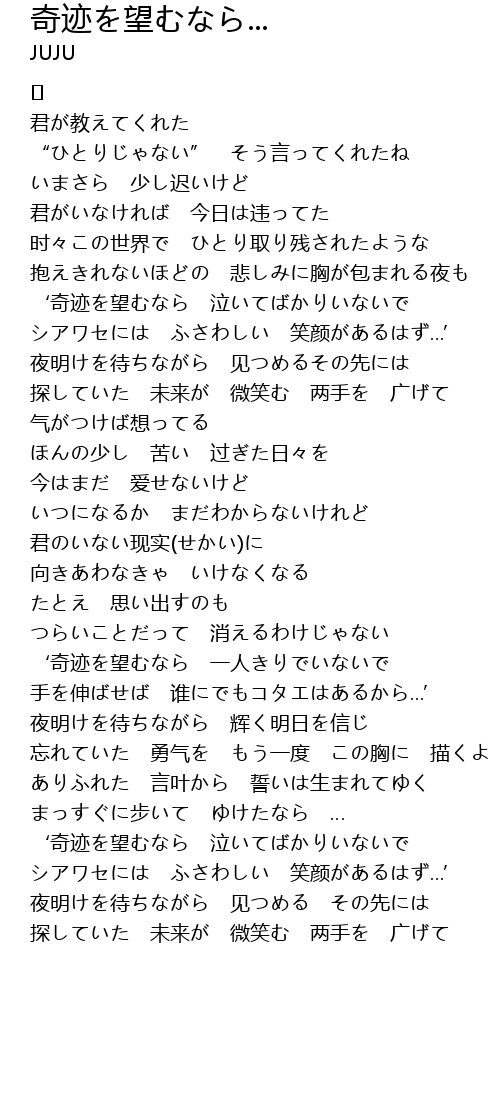 奇迹を望むなら...
JUJU
[]
君が教えてくれた
“ひとりじゃない”　そう言ってくれたね
いまさら　少し迟いけど
君がいなければ　今日は违ってた
时々この世界で　ひとり取り残されたような
抱えきれないほどの　悲しみに胸が包まれる夜も
‘奇迹を望むなら　泣いてばかりいないで
シアワセには　ふさわしい　笑颜があるはず...’
夜明けを待ちながら　见つめるその先には
探していた　未来が　微笑む　两手を　广げて
气がつけば想ってる
ほんの少し　苦い　过ぎた日々を
今はまだ　爱せないけど
いつになるか　まだわからないけれど
君のいない现实(せかい)に
向きあわなきゃ　いけなくなる
たとえ　思い出すのも
つらいことだって　消えるわけじゃない
‘奇迹を望むなら　一人きりでいないで
手を伸ばせば　谁にでもコタエはあるから...’
夜明けを待ちながら　辉く明日を信じ
忘れていた　勇气を　もう一度　この胸に　描くよ
ありふれた　言叶から　誓いは生まれてゆく
まっすぐに步いて　ゆけたなら　...
‘奇迹を望むなら　泣いてばかりいないで
シアワセには　ふさわしい　笑颜があるはず...’
夜明けを待ちながら　见つめる　その先には
探していた　未来が　微笑む　两手を　广げて